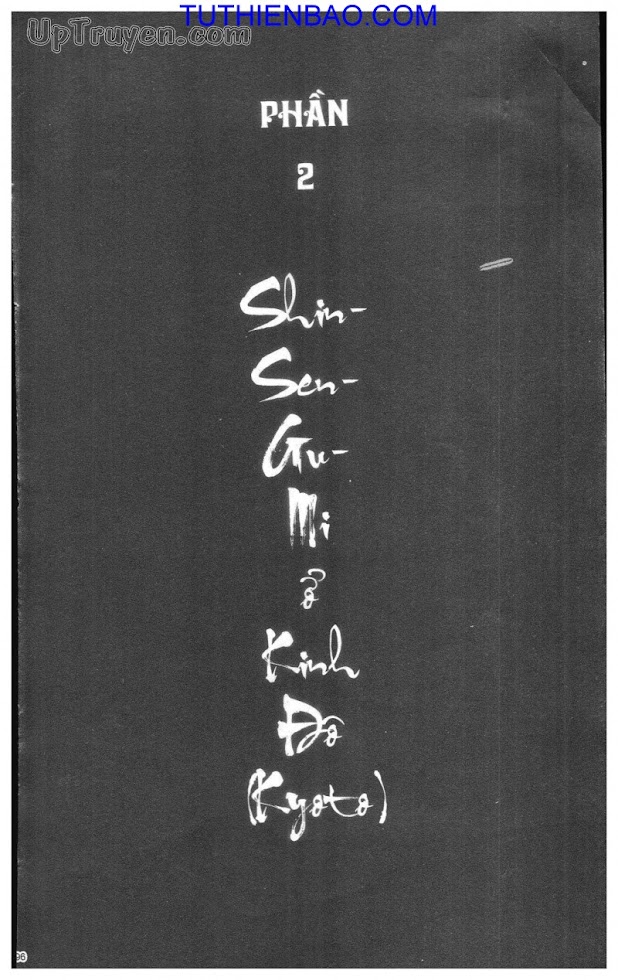 TUTHIENBAO.COM
UpTruyen.com
PHẦN
2
Shin-
Sen-
Gu-
Mi
ở
Kinh
Đô
(Kyoto)
96